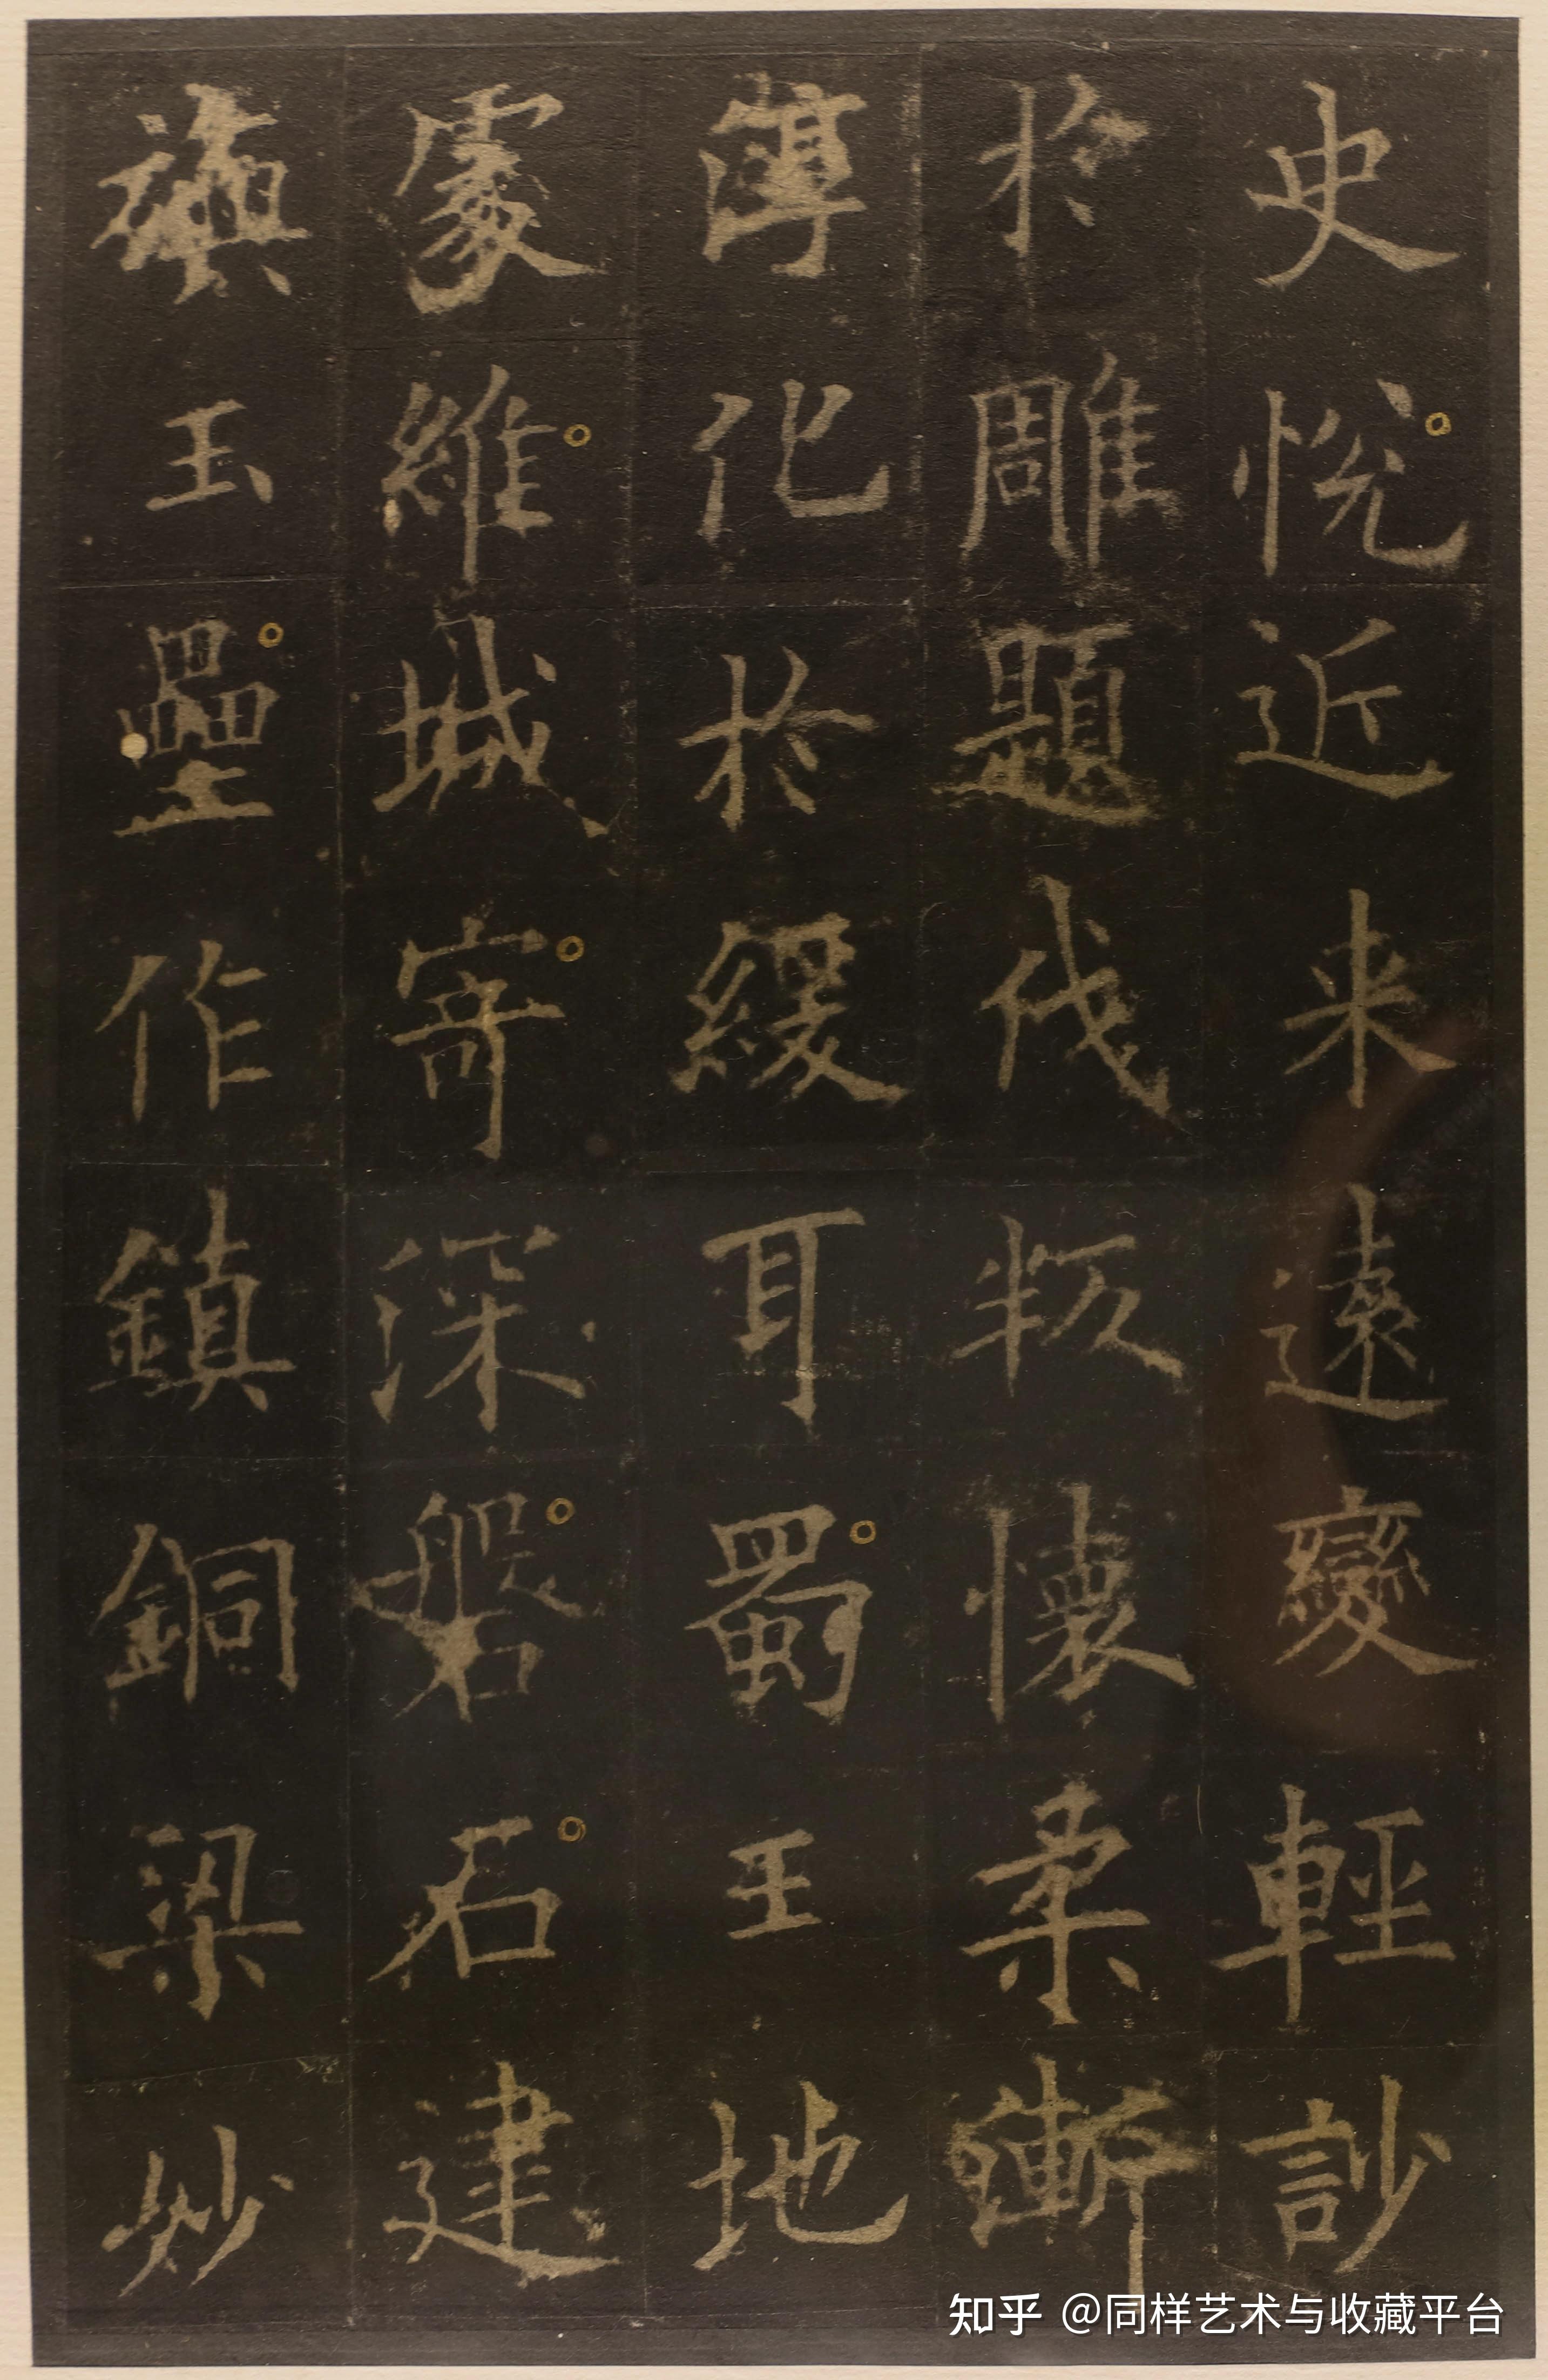 史悅近来遠變輕訬
於雕題伐叛懷柔漸
薄化於緩耳蜀王地
處維城寄深磐石建
旟玉壘作鎮銅梁妙
知乎 @同样艺术与收藏平台